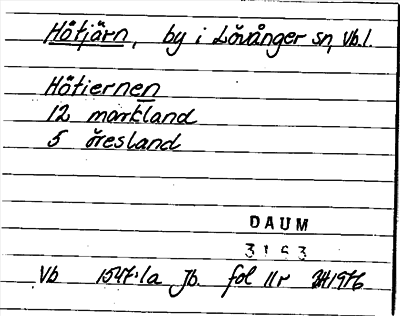 Hötjärn, by i Lövånger sn, Vb.l.
Hötiernen
12 markland
5 öresland
DAUM
3163
Vb 1547:1a Jb. fol 11r 1976